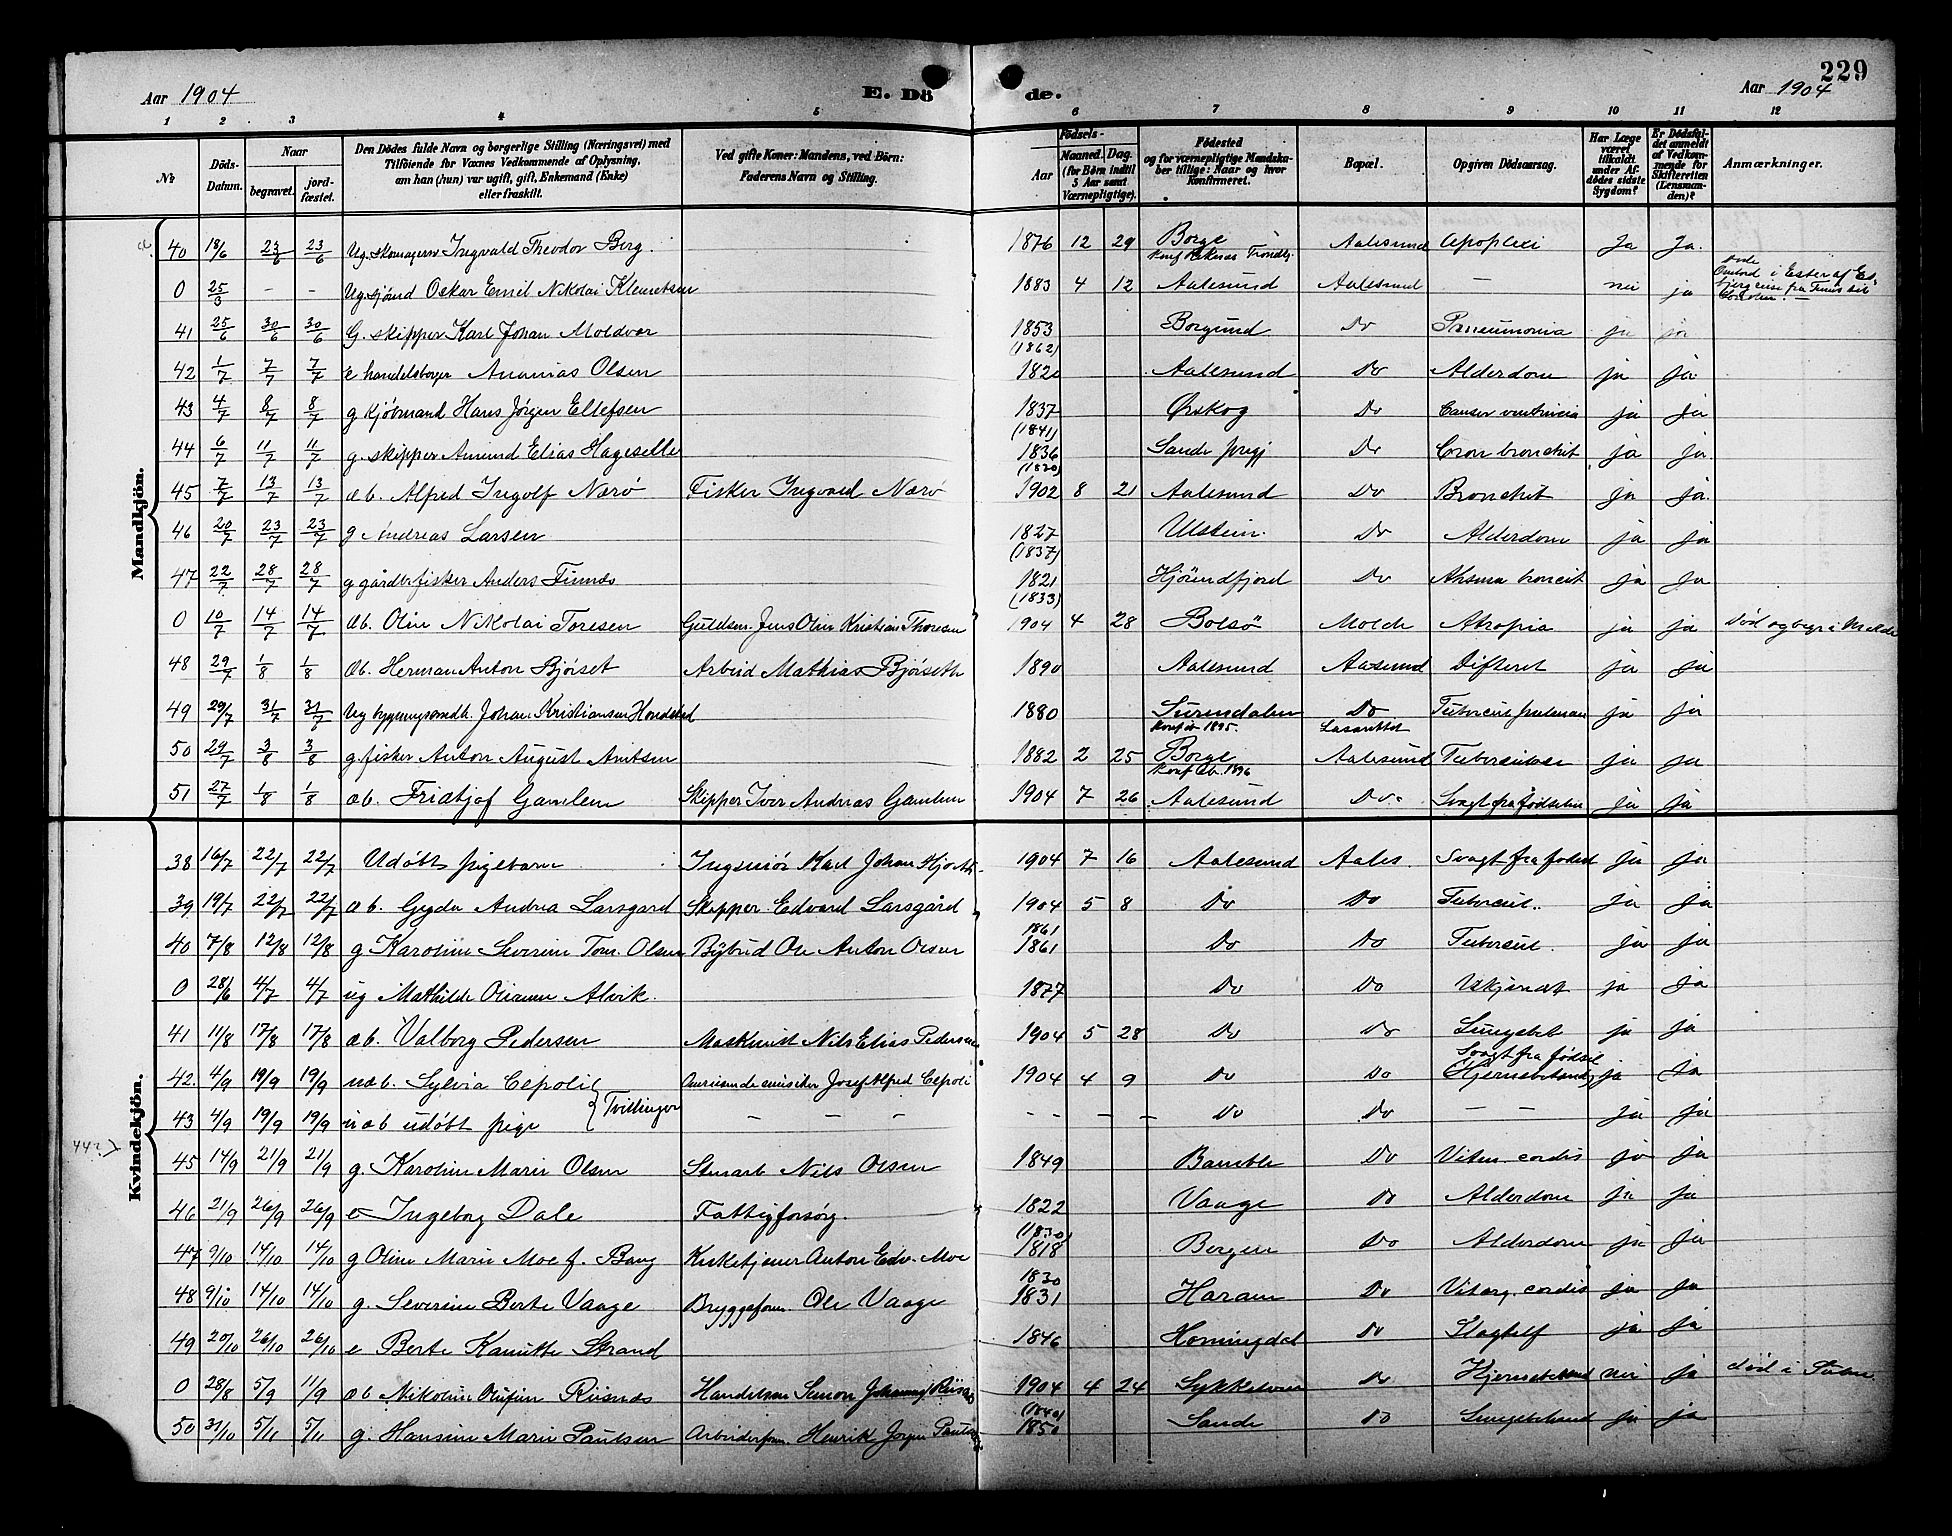 229
Aar 1904
E. Dö
de.
Aar 1904
1 2 3 4 5 6 7 8 9 10 11 12
№ Döds-Datum. Naar begravet. jord-fæstet. Den Dödes fulde Navn og borgerlige Stilling (Næringsvei) med Tilföiende for Voxnes Vedkommende af Oplysning, om han (hun) var ugift, gift, Enkemand (Enke) eller fraskilt. Ved gifte Koner: Mandens, ved Börn: Faderens Navn og Stilling. Födsels- Aar Maaned. Dag. (for Börn indtil 5 Aar samt Værnepligtige). Födested og for værnepligtige Mandska-ber tillige: Naar og hvor Konfirmeret. Bopæl. Opgiven Dödsaarsag. Har Læge været tilkaldt under Af-dödes sidste Sygdom? Er Dödsfal-det anmeldt af Vedkom-mende for Skifteretten (Lensman-den)? Anmærkninger.
Mandkjön.
40 18/6 23/6 23/6 Ug. skomagersv Ingvald Theodor Berg. 1876 12 29 Borge Aalesund Apoplexi Ja Ja.
0 25/3 - - Ug. sjömd Oskar Emil Nikolai Klemetsen 1883 4 12 Aalesund Aalesund — nei ja
41 25/6 30/6 30/6 G. skipper Karl Johan Moldvær 1853 (1862) Borgund Do Pneumonia ja ja
42 1/7 7/7 7/7 e handelsborger Ananias Olsen 1820 Aalesund Do Alderdom ja ja.
43 4/7 8/7 8/7 g kjöbmand Hans Jörgen Ellefsen 1837 (1841) Ørskog Do Cancer ventriculi ja ja
44 6/7 11/7 11/7 g. skipper Amund Elias Hageselle 1836 (1820) Sande prgj Do Cron bronchit ja ja.
45 7/7 13/7 13/7 æb. Alfred Ingolf Nærö Fisker Ingvald Nærö 1902 8 21 Aalesund Do Bronchit ja ja.
46 20/7 23/7 23/7 g Andreas Larsen 1827 (1837) Ulstein. Do Alderdom ja ja
47 22/7 28/7 28/7 g gårdb. fisker Anders Finnes 1821 (1833) Hjörundfjord Do ja ja
0 10/7 14/7 14/7 æb. Olin Nikolai Toresen Guldsm. Jens Olin Kristian Thoresen 1904 4 28 Bolsö Molde Atropia ja ja Död og begr i Molde
48 29/7 1/8 1/8 Æb. Herman Anton Bjørset Arbeid Mathias Bjørseth 1890 Aalesund Aalesund Difterit ja ja
49 29/7 31/7 31/7 Ug bygningssmdk. Johan Kristiansen Hondstad 1880 Surendalen Konf. 1895. Do Lasarettet ja ja
50 29/7 3/8 3/8 g. fisker Anton August Arntsen 1882 2 25 Borge Konf. 1896 Aalesund Tuberculose ja ja
51 27/7 1/8 1/8 æb. Fridtjof Gamlem Skipper Iver Andreas Gamlem 1904 7 26 Aalesund Do. Svagt fra födselen ja ja
Kvindekjön.
38 16/7 22/7 22/7 Udöbt pigebarn. Ingeniör Karl Johan Hjorth 1904 7 16 Aalesund Aales. Svagt fra födsel ja ja
39 19/7 22/7 22/7 æb. Gyda Andrea Larsgard Skipper Edvard Larsgård 1904 5 8 Do Do Tubercul. ja ja
40 7/8 12/8 12/8 g Karoline Severine Tom. Olsen Bybud Ole Anton Olsen 1861 1861 Do Do Tubercul. ja ja
0 28/6 4/7 4/7 ug Mathilde Olianne Alvik. 1877 Do Do Ukjendt ja ja
41 11/8 17/8 17/8 æb. Valborg Pedersen Maskinist Nils Elias Pedersen 1904 5 28 Do Do Lungebet ja ja
42. 4/9 19/9 19/9 uæb. Sylvia Cepoli Omreisende musiker Josef Alfred Cepoli 1904 4 9 Do Do Svagt fra födsel Hjernebetænd ja ja
43 4/9 19/9 19/9 uæb udöbt pige { Tvillinger — — — - - - - Do Do — — ja ja
44?
45 14/9 21/9 21/9 g. Karoline Marie Olsen Stuearb Nils Olsen 1849 Bamble Do Vitium cordis ja ja
46 21/9 26/9 26/9 e Ingeborg Dale Fattigforsörg. 1822 (1830) Vaage Do Alderdom ja ja
47 9/10 14/10 14/10 g Oline Marie Moe f. Bang Kirketjener Anton Edv. Moe 1818 Bergen Do Alderdom ja ja
48 9/10 14/10 14/10 g. Severine Berte Vaage Bryggeform. Ole Vaage 1830 1831 Haram Do Vitieg. cordis ja ja
49 20/10 26/10 26/10 e Berte Kanutte Strand 1846 Horningdal Do Slagtilf ja ja
0 28/8 5/9 11/9 æb Nikoline Olufine Riisnæs Handelsm Simon Johannes Riisnæs 1904 4 24 Sykkelven Do Hjernebetænd nei ja död i Sulen
50 31/10 5/11 5/11 g. Hansine Marie Paulsen Arbeiderform. Henrik Jörgen Paulsen (1840) 1850 Sande Do Lungebetænd ja ja